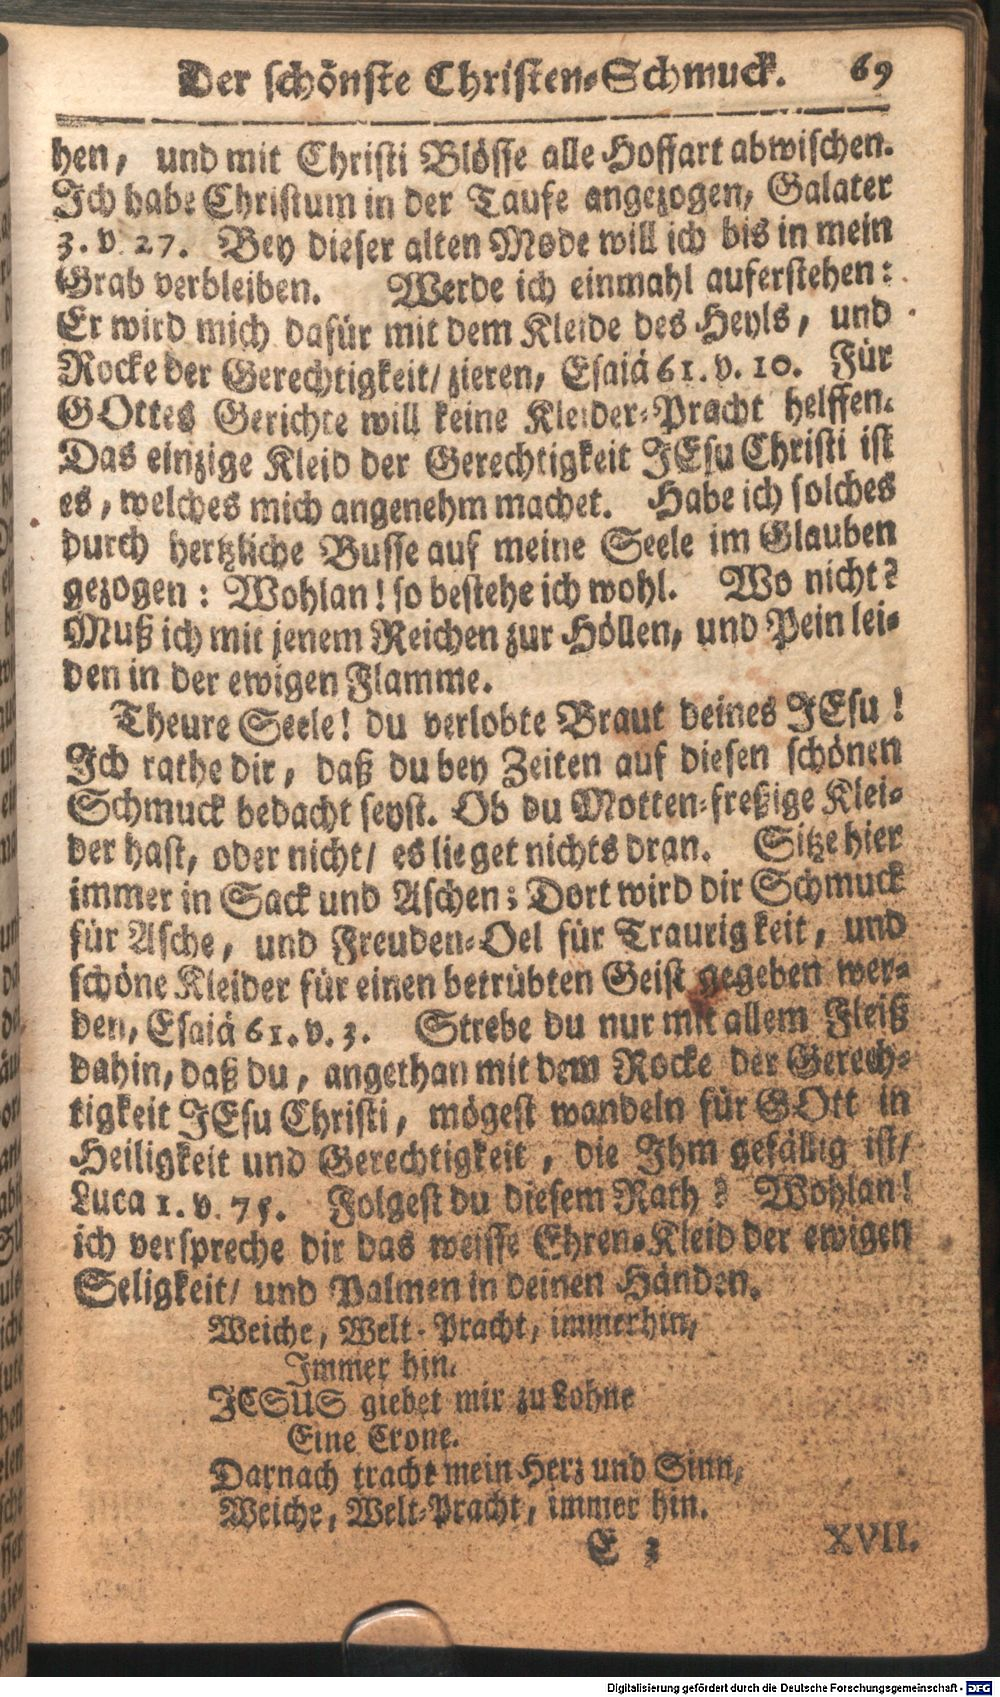 Der schönste Christen-Schmuck. 69
hen, und mit Christi Blösse alle Hoffart abwischen.
Ich habe Christum in der Taufe angezogen, Galater
3. v. 27. Bey dieser alten Mode will ich bis in mein
Grab verbleiben. Werde ich einmahl auferstehen:
Er wird mich dafür mit dem Kleide des Heyls, und
Rocke der Gerechtigkeit/ zieren, Esaiä 61. v. 10. Für
GOttes Gerichte will keine Kleider-Pracht helffen.
Das einzige Kleid der Gerechtigkeit JEsu Christi ist
es, welches mich angenehm machet. Habe ich solches
durch hertzliche Busse auf meine Seele im Glauben
gezogen: Wohlan! so bestehe ich wohl. Wo nicht?
Muß ich mit jenem Reichen zur Höllen, und Pein lei-
den in der ewigen Flamme.
Theure Seele! du verlobte Braut deines JEsu!
Ich rathe dir, daß du bey Zeiten auf diesen schönen
Schmuck bedacht seyst. Ob du Motten-freßige Klei-
der hast, oder nicht/ es lieget nichts dran. Sitze hier
immer in Sack und Aschen: Dort wird dir Schmuck
für Asche, und Freuden-Oel für Traurigkeit, und
schöne Kleider für einen betrübten Geist gegeben wer-
den, Esaiä 61. v. 3. Strebe du nur mit allem Fleiß
dahin, daß du, angethan mit dem Rocke der Gerech-
tigkeit JEsu Christi, mögest wandeln für GOtt in
Heiligkeit und Gerechtigkeit, die Ihm gefällig ist/
Luca 1. v. 75. Folgest du diesem Rath? Wohlan!
ich verspreche dir das weisse Ehren-Kleid der ewigen
Seligkeit/ und Palmen in deinen Händen.
Weiche, Welt-Pracht, immerhin,
Immer hin.
JESUS giebet mir zu Lohne
Eine Crone.
Darnach tracht mein Herz und Sinn,
Weiche, Welt-Pracht, immer hin.
E 3 XVII.
Digitalisierung gefördert durch die Deutsche Forschungsgemeinschaft - DFG